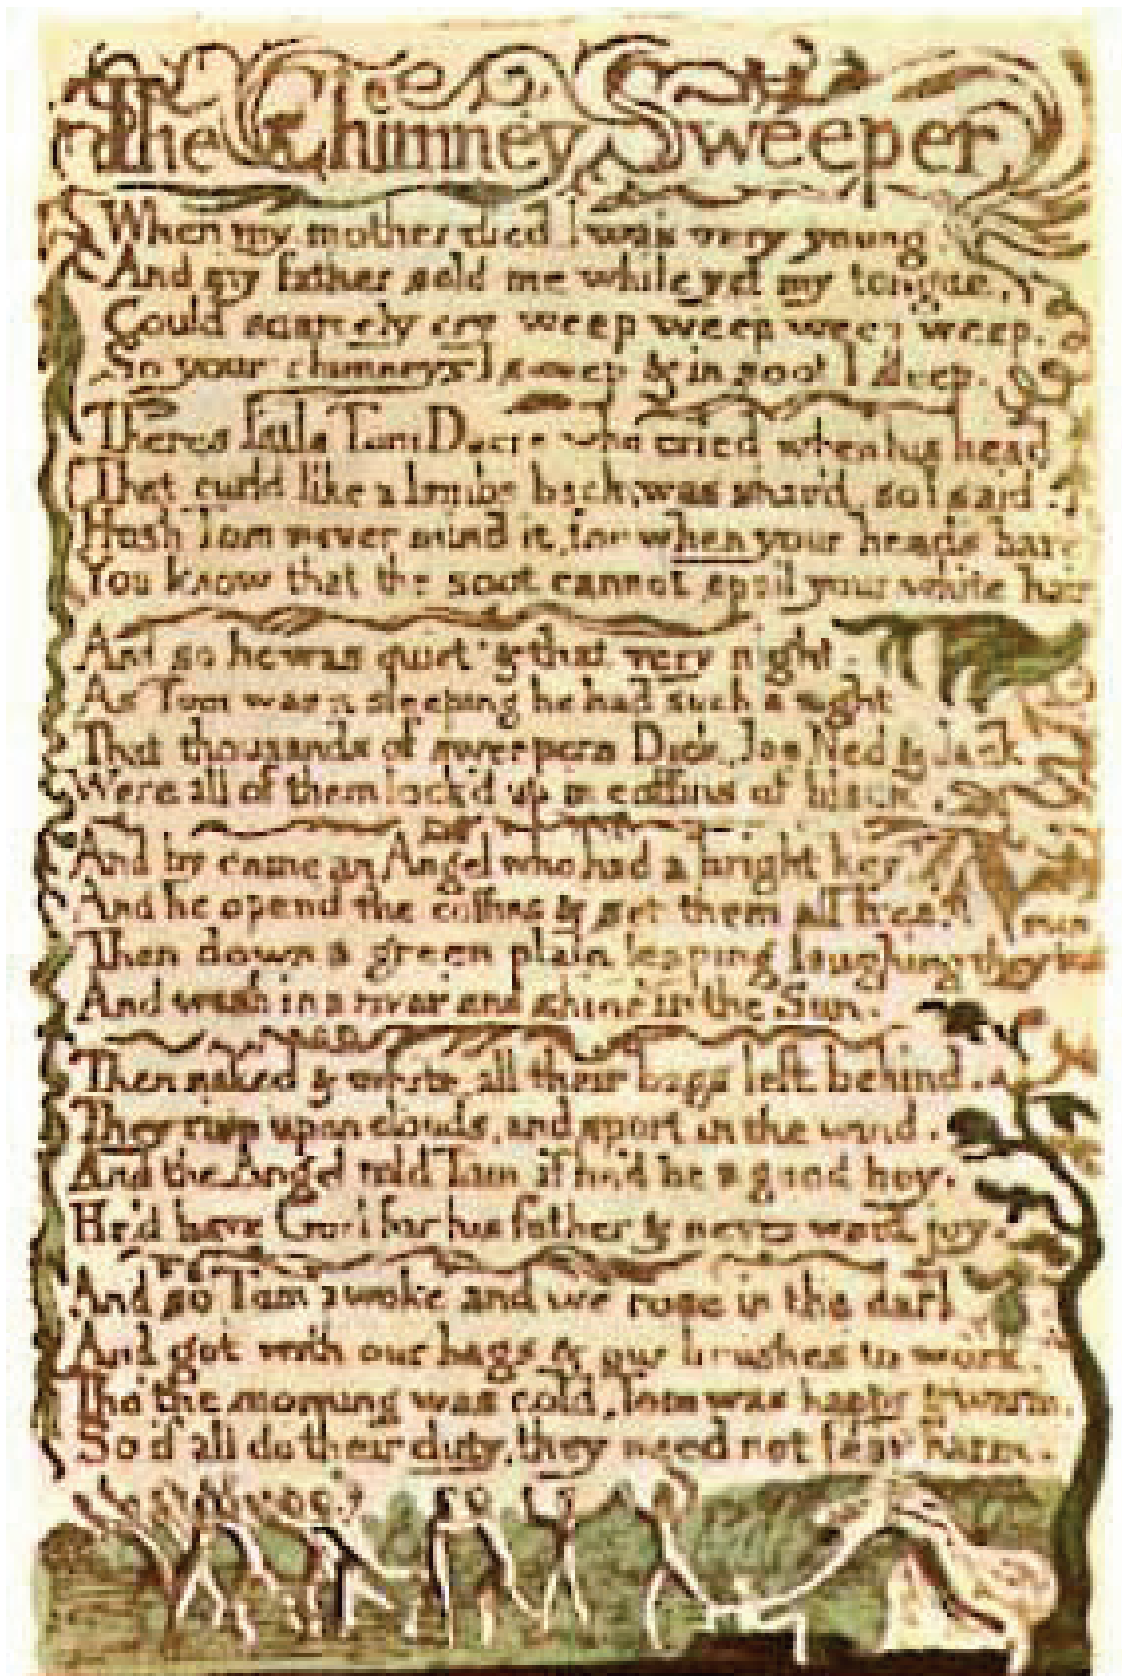 The Chimney Sweeper
When my mother died I was very young
And my father sold me while yet my tongue,
Could scarcely cry weep weep weep weep.
So your chimneys I sweep & in soot I sleep.
Theres little Tom Dacre who cried when his head
That curld like a lambs back, was shav'd, so I said.
Hush Tom never mind it, for when your head's bare
You know that the soot cannot spoil your white hair
And so he was quiet & that very night.
As Tom was a sleeping he had such a sight
That thousands of sweepers Dick, Joe, Ned & Jack
Were all of them lock'd up in coffins of black,
And by came an Angel who had a bright key
And he open'd the coffins & set them all free.
Then down a green plain leaping laughing they run
And wash in a river and shine in the Sun.
Then naked & white, all their bags left behind.
They rise upon clouds, and sport in the wind.
And the Angel told Tom, if he'd be a good boy,
He'd have God for his father & never want joy.
And so Tom awoke and we rose in the dark
And got with our bags & our brushes to work.
Tho' the morning was cold, Tom was happy & warm.
So if all do their duty, they need not fear harm.